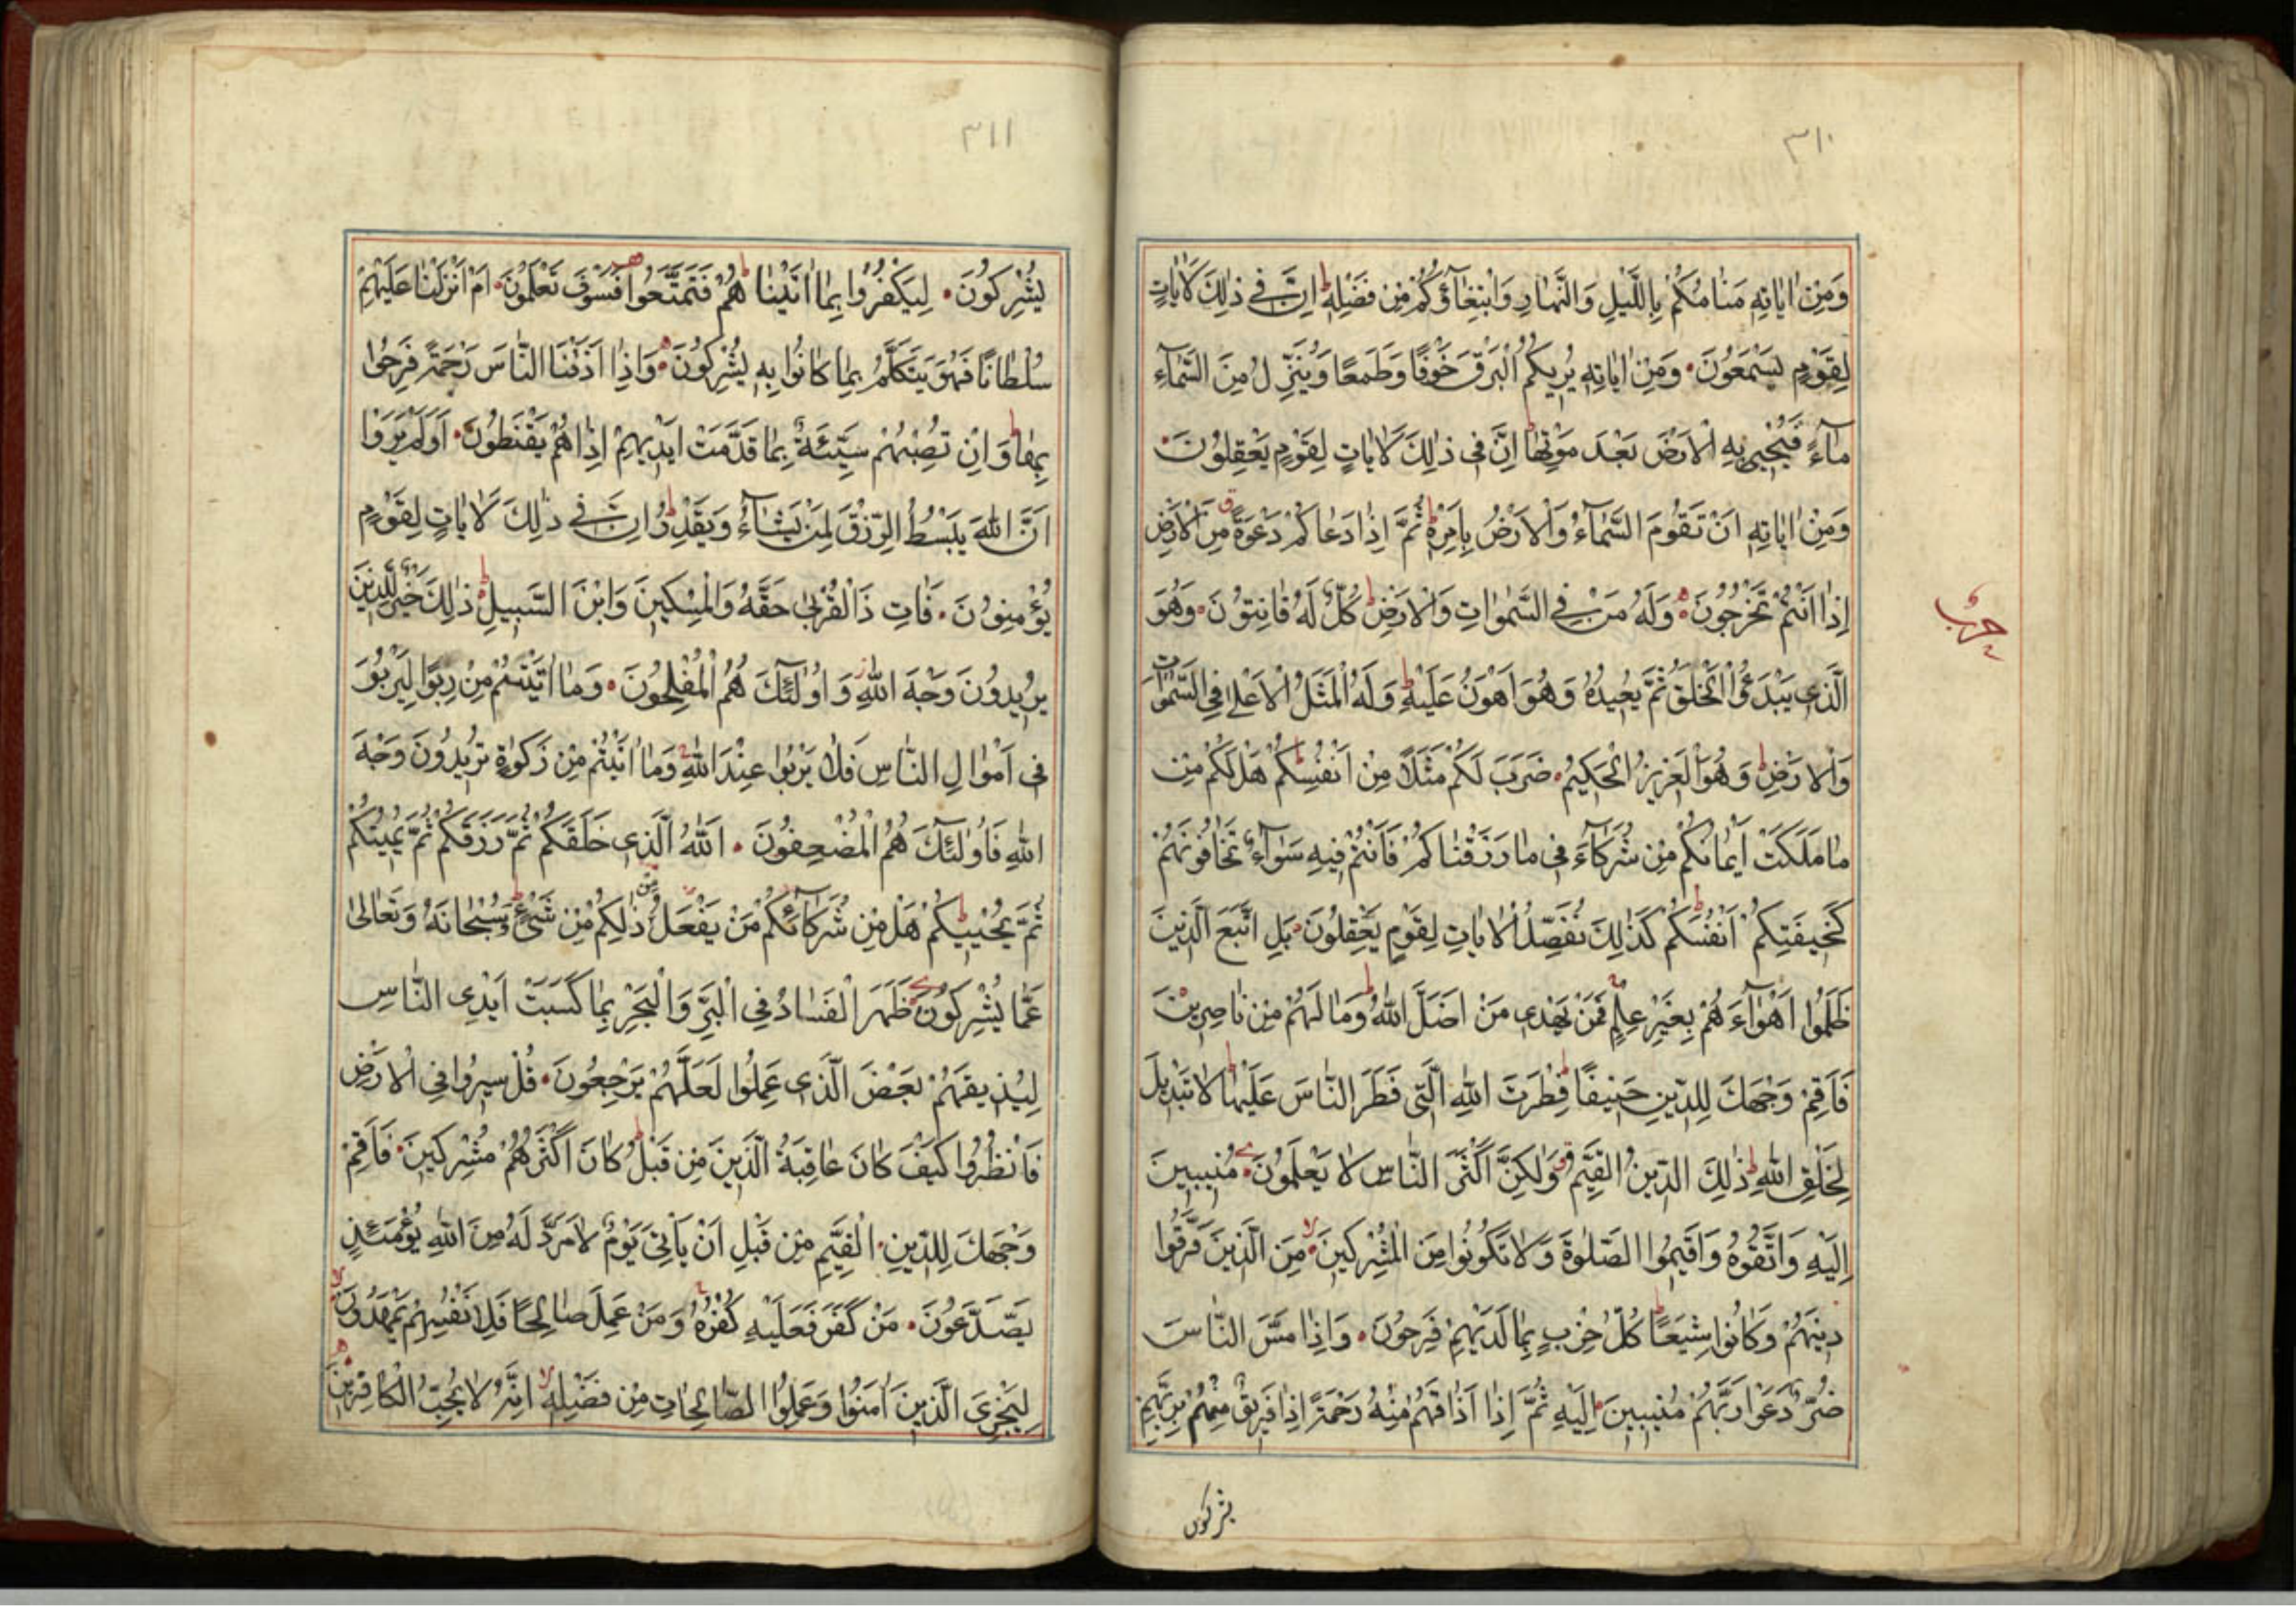 ٣١٠
وَمِنْ اٰيَاتِهِ مَنَامُكُمْ بِاللَّيْلِ وَالنَّهَارِ وَابْتِغَآؤُكُمْ مِنْ فَضْلِهِ ط اِنَّ فِي ذٰلِكَ لَاٰيَاتٍ
لِقَوْمٍ يَسْمَعُونَ وَمِنْ اٰيَاتِهِ يُرِيكُمُ الْبَرْقَ خَوْفًا وَطَمَعًا وَيُنَزِّلُ مِنَ السَّمَآءِ
مَآءً فَيُحْيِي بِهِ الْاَرْضَ بَعْدَ مَوْتِهَا ط اِنَّ فِي ذٰلِكَ لَاٰيَاتٍ لِقَوْمٍ يَعْقِلُونَ
وَمِنْ اٰيَاتِهِ اَنْ تَقُومَ السَّمَآءُ وَالْاَرْضُ بِاَمْرِهِ ط ثُمَّ اِذَا دَعَاكُمْ دَعْوَةً ق مِنَ الْاَرْضِ
اِذَا اَنْتُمْ تَخْرُجُونَ وَلَهُ مَنْ فِي السَّمٰوَاتِ وَالْاَرْضِ ط كُلٌّ لَهُ قَانِتُونَ وَهُوَ
حزب
الَّذِي يَبْدَؤُا الْخَلْقَ ثُمَّ يُعِيدُهُ وَهُوَ اَهْوَنُ عَلَيْهِ ط وَلَهُ الْمَثَلُ الْاَعْلٰى فِي السَّمٰوَاتِ
وَالْاَرْضِ ط وَهُوَ الْعَزِيزُ الْحَكِيمُ ضَرَبَ لَكُمْ مَثَلًا مِنْ اَنْفُسِكُمْ ط هَلْ لَكُمْ مِنْ
مَا مَلَكَتْ اَيْمَانُكُمْ مِنْ شُرَكَآءَ فِي مَا رَزَقْنَاكُمْ فَاَنْتُمْ فِيهِ سَوَآءٌ تَخَافُونَهُمْ
كَخِيفَتِكُمْ اَنْفُسَكُمْ ط كَذٰلِكَ نُفَصِّلُ الْاٰيَاتِ لِقَوْمٍ يَعْقِلُونَ بَلِ اتَّبَعَ الَّذِينَ
ظَلَمُوا اَهْوَآءَهُمْ بِغَيْرِ عِلْمٍ ج فَمَنْ يَهْدِي مَنْ اَضَلَّ اللّٰهُ ط وَمَا لَهُمْ مِنْ نَاصِرِينَ
فَاَقِمْ وَجْهَكَ لِلدِّينِ حَنِيفًا ط فِطْرَتَ اللّٰهِ الَّتِي فَطَرَ النَّاسَ عَلَيْهَا ط لَا تَبْدِيلَ
لِخَلْقِ اللّٰهِ ط ذٰلِكَ الدِّينُ الْقَيِّمُ ق وَلٰكِنَّ اَكْثَرَ النَّاسِ لَا يَعْلَمُونَ مُنِيبِينَ
اِلَيْهِ وَاتَّقُوهُ وَاَقِيمُوا الصَّلٰوةَ وَلَا تَكُونُوا مِنَ الْمُشْرِكِينَ لا مِنَ الَّذِينَ فَرَّقُوا
دِينَهُمْ وَكَانُوا شِيَعًا ط كُلُّ حِزْبٍ بِمَا لَدَيْهِمْ فَرِحُونَ وَاِذَا مَسَّ النَّاسَ
ضُرٌّ دَعَوْا رَبَّهُمْ مُنِيبِينَ اِلَيْهِ ثُمَّ اِذَا اَذَاقَهُمْ مِنْهُ رَحْمَةً اِذَا فَرِيقٌ مِنْهُمْ بِرَبِّهِمْ
يشركون
٣١١
يُشْرِكُونَ لِيَكْفُرُوا بِمَا اٰتَيْنَاهُمْ ط فَتَمَتَّعُوا فَسَوْفَ تَعْلَمُونَ اَمْ اَنْزَلْنَا عَلَيْهِمْ
سُلْطَانًا فَهُوَ يَتَكَلَّمُ بِمَا كَانُوا بِهِ يُشْرِكُونَ وَاِذَا اَذَقْنَا النَّاسَ رَحْمَةً فَرِحُوا
بِهَا ط وَاِنْ تُصِبْهُمْ سَيِّئَةٌ بِمَا قَدَّمَتْ اَيْدِيهِمْ اِذَا هُمْ يَقْنَطُونَ اَوَلَمْ يَرَوْا
اَنَّ اللّٰهَ يَبْسُطُ الرِّزْقَ لِمَنْ يَشَآءُ وَيَقْدِرُ ط اِنَّ فِي ذٰلِكَ لَاٰيَاتٍ لِقَوْمٍ
يُؤْمِنُونَ فَاٰتِ ذَا الْقُرْبٰى حَقَّهُ وَالْمِسْكِينَ وَابْنَ السَّبِيلِ ط ذٰلِكَ خَيْرٌ لِلَّذِينَ
يُرِيدُونَ وَجْهَ اللّٰهِ ز وَاُولٰٓئِكَ هُمُ الْمُفْلِحُونَ وَمَا اٰتَيْتُمْ مِنْ رِبًوا لِيَرْبُوَ
فِي اَمْوَالِ النَّاسِ فَلَا يَرْبُوا عِنْدَ اللّٰهِ ج وَمَا اٰتَيْتُمْ مِنْ زَكٰوةٍ تُرِيدُونَ وَجْهَ
اللّٰهِ فَاُولٰٓئِكَ هُمُ الْمُضْعِفُونَ اَللّٰهُ الَّذِي خَلَقَكُمْ ثُمَّ رَزَقَكُمْ ثُمَّ يُمِيتُكُمْ
ثُمَّ يُحْيِيكُمْ ط هَلْ مِنْ شُرَكَآئِكُمْ مَنْ يَفْعَلُ مِنْ ذٰلِكُمْ مِنْ شَيْءٍ ط سُبْحَانَهُ وَتَعَالٰى
عَمَّا يُشْرِكُونَ ظَهَرَ الْفَسَادُ فِي الْبَرِّ وَالْبَحْرِ بِمَا كَسَبَتْ اَيْدِي النَّاسِ
لِيُذِيقَهُمْ بَعْضَ الَّذِي عَمِلُوا لَعَلَّهُمْ يَرْجِعُونَ قُلْ سِيرُوا فِي الْاَرْضِ
فَانْظُرُوا كَيْفَ كَانَ عَاقِبَةُ الَّذِينَ مِنْ قَبْلُ ط كَانَ اَكْثَرُهُمْ مُشْرِكِينَ فَاَقِمْ
وَجْهَكَ لِلدِّينِ الْقَيِّمِ مِنْ قَبْلِ اَنْ يَاْتِيَ يَوْمٌ لَا مَرَدَّ لَهُ مِنَ اللّٰهِ يَوْمَئِذٍ
يَصَّدَّعُونَ مَنْ كَفَرَ فَعَلَيْهِ كُفْرُهُ ج وَمَنْ عَمِلَ صَالِحًا فَلِاَنْفُسِهِمْ يَمْهَدُونَ لا
لِيَجْزِيَ الَّذِينَ اٰمَنُوا وَعَمِلُوا الصَّالِحَاتِ مِنْ فَضْلِهِ لا اِنَّهُ لَا يُحِبُّ الْكَافِرِينَ